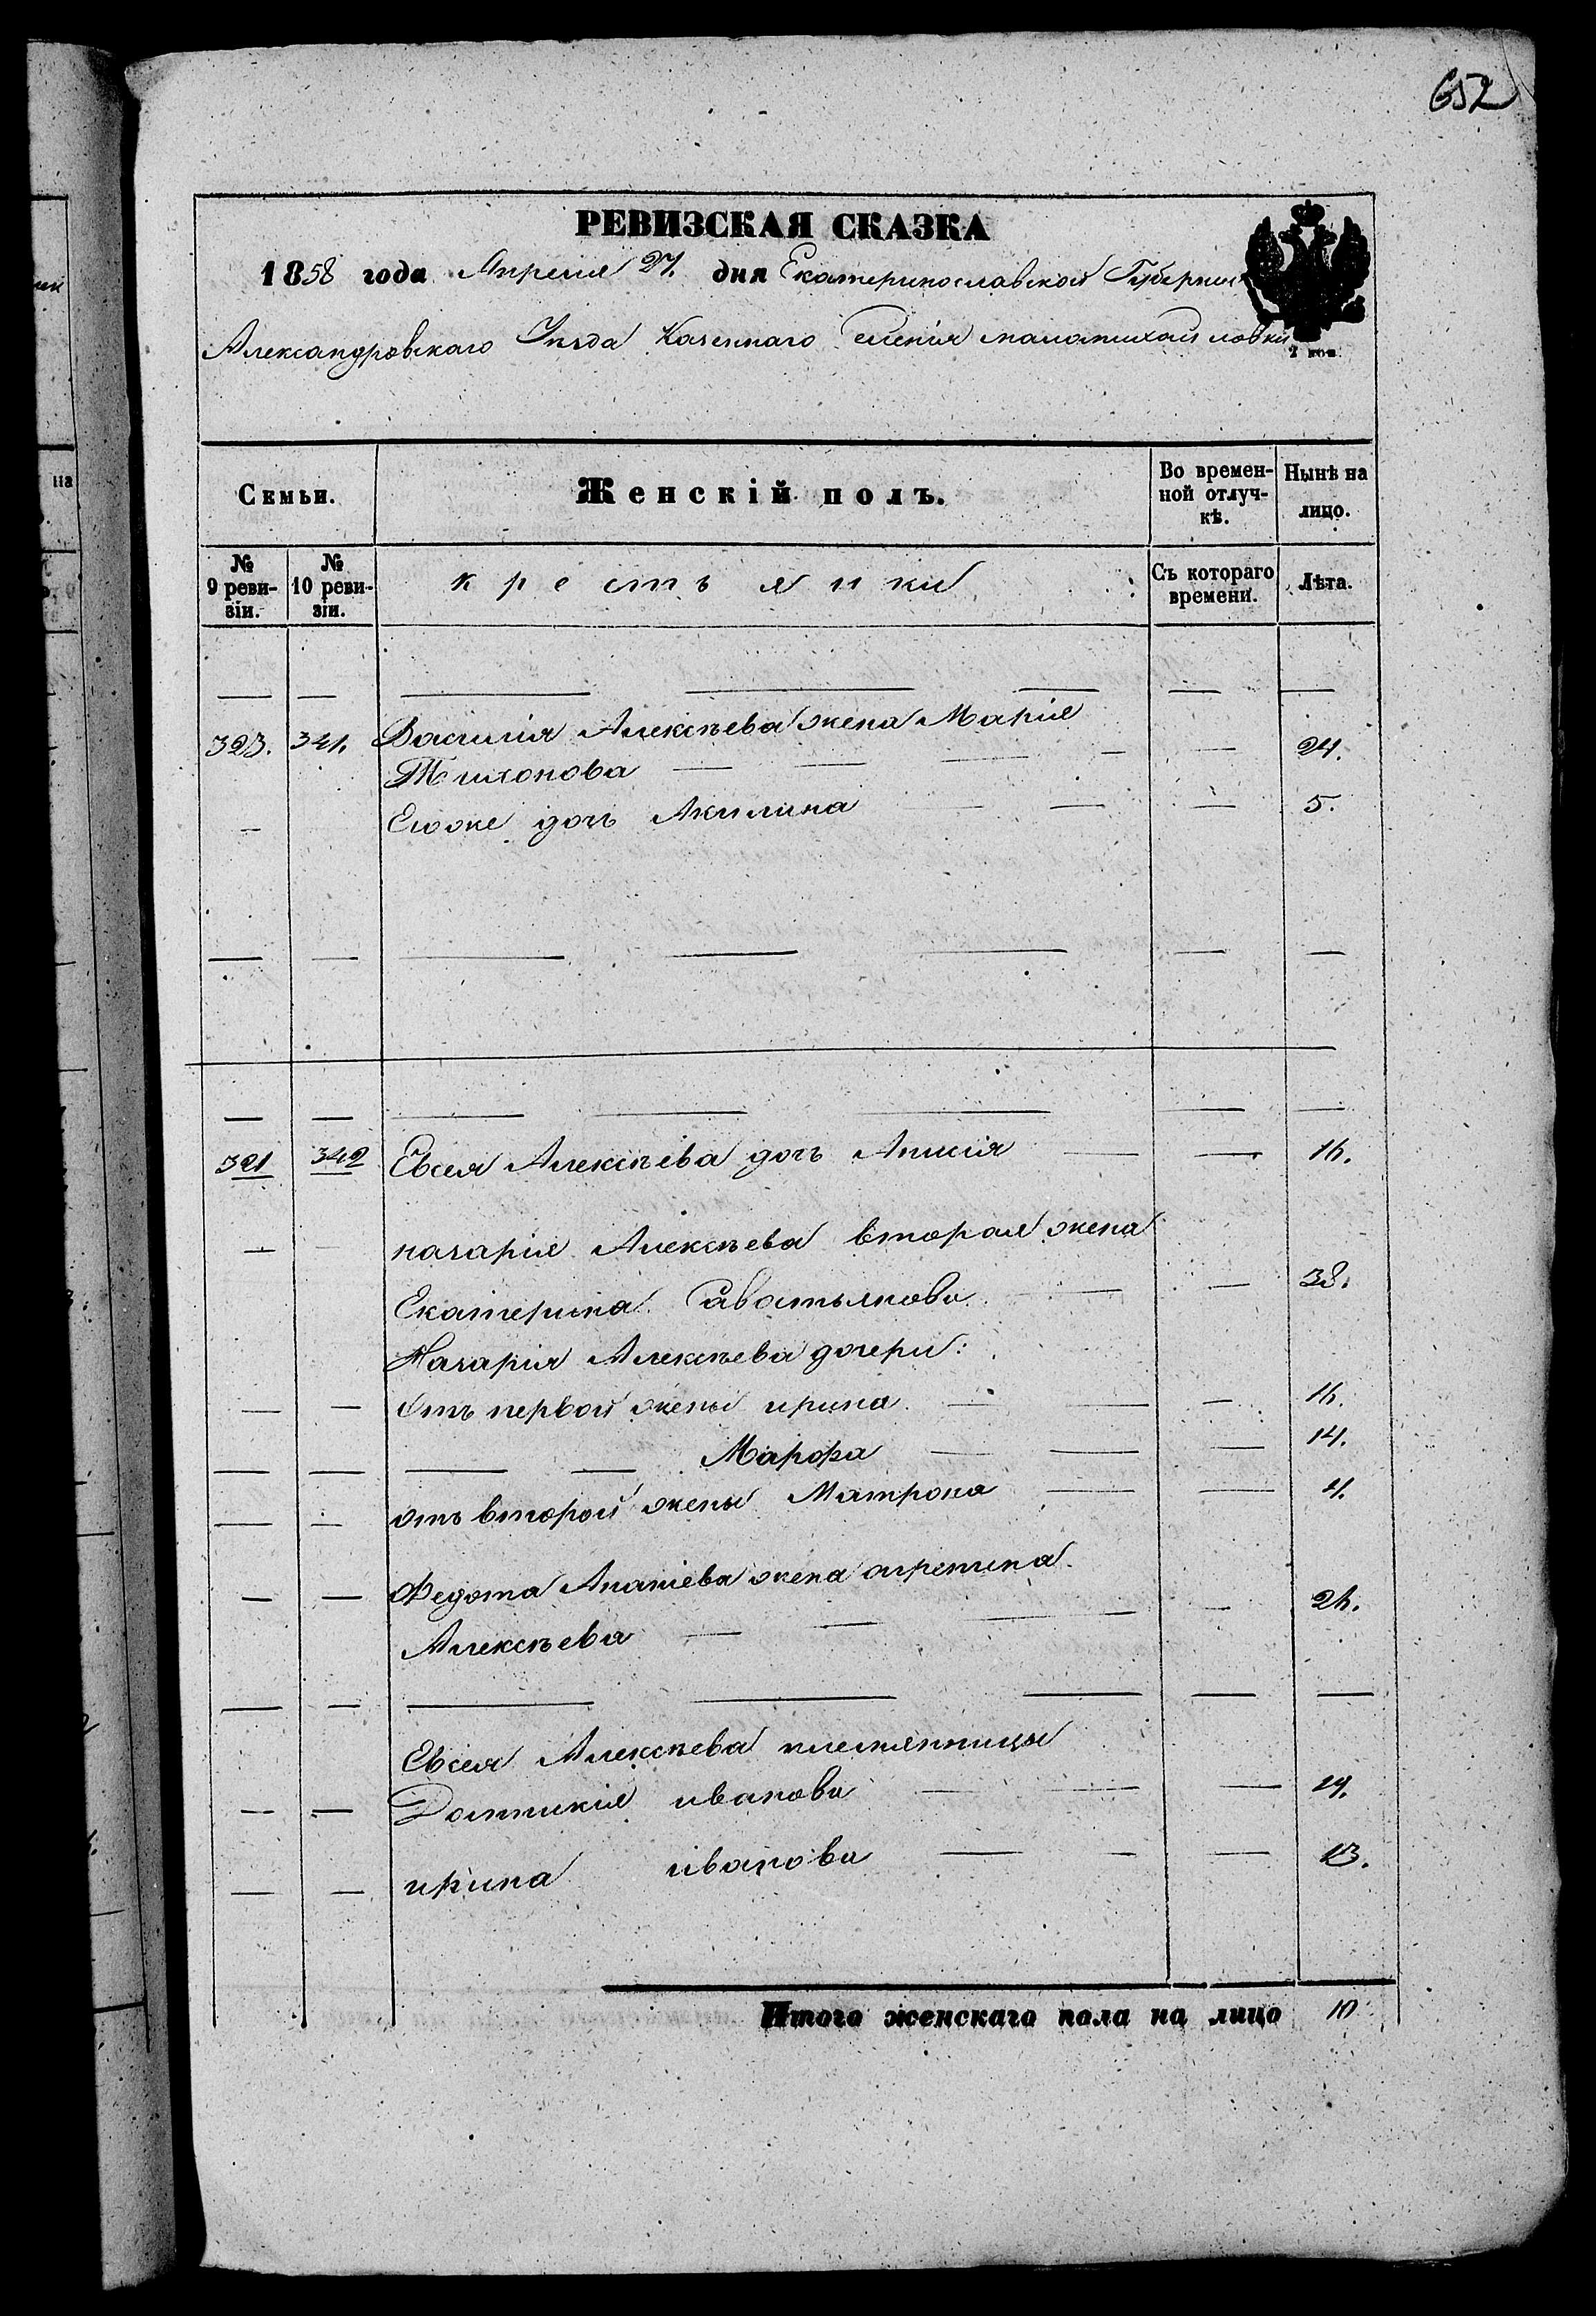 652
РЕВИЗСКАЯ СКАЗКА
1858 года Апреля 27. дня Екатеринославской Губернии
Александровскаго Уезда Казеннаго селенія маломихайловки
2 коп.
Семьи.
Женскій полъ.
Во временной отлучкѣ.
Нынѣ на лицо.
№ 9 ревизіи.
№ 10 ревизіи.
крестьянки
Съ котораго времени.
Лѣта.
323. 341. Василия Алексѣева жена Марія
Тихонова 24.
Егоже дочь Акилина 5.
321 342 Евсея Алексѣева дочь Анисія 16.
назарія Алексѣева вторая жена
Екатерина Савостьянова 38.
Назарія Алексѣева дочери:
отъ первой жены ирина 16.
Марфа 14.
отъ второй жены Матрона 4.
Федота Ананіева жена агрепина
Алексѣева 26.
Евсея Алексѣева племянницы
Домникія иванова 19.
ирина иванова 13.
Итого женскаго пола на лицо 10